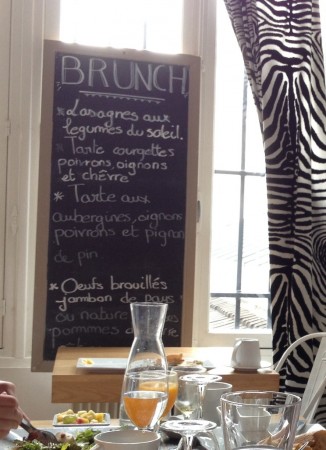 BRUNCH
* Lasagnes aux
légumes du soleil.
* Tarte courgettes
poivrons, oignons
et chèvre
* Tarte aux
aubergines, oignons
poivrons et pignon
de pin
* Oeufs brouillés
jambon de pays
ou nature
pommes de terre